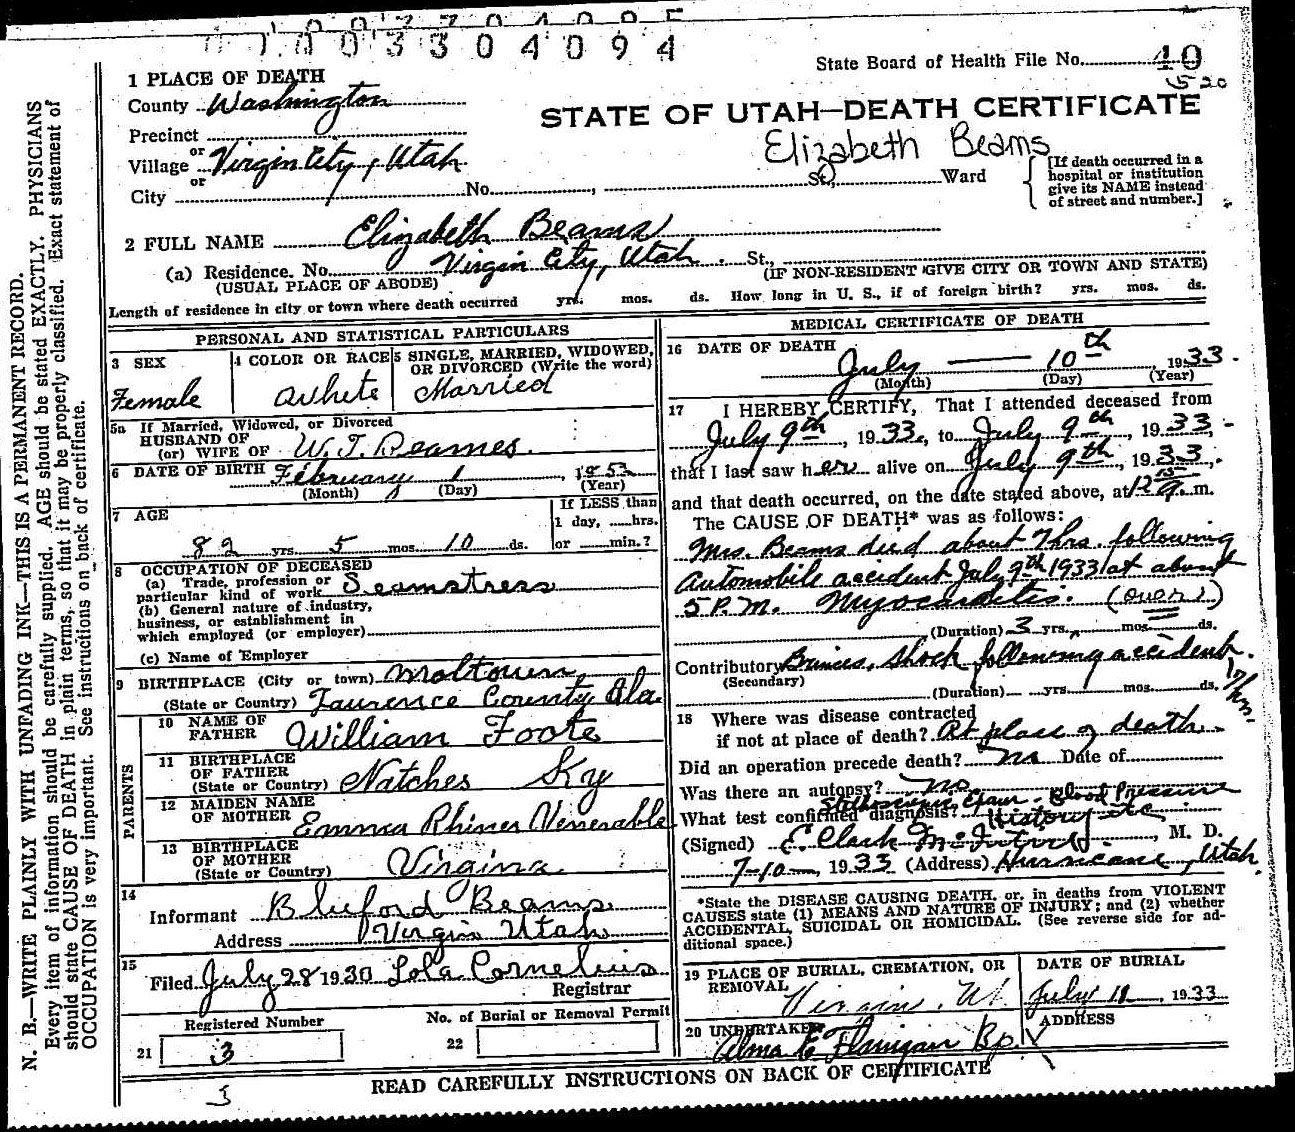 1003304094
State Board of Health File No. 40
520
1 PLACE OF DEATH
County Washington
STATE OF UTAH—DEATH CERTIFICATE
Precinct
Elizabeth Beams
or
Village Virgin City, Utah
or
City No. , St., Ward
[If death occurred in a
hospital or institution
give its NAME instead
of street and number.]
2 FULL NAME Elizabeth Beams
(a) Residence. No. Virgin City, Utah. St.,
(USUAL PLACE OF ABODE) (IF NON-RESIDENT GIVE CITY OR TOWN AND STATE)
Length of residence in city or town where death occurred yrs. mos. ds. How long in U. S., if of foreign birth? yrs. mos. ds.
PERSONAL AND STATISTICAL PARTICULARS
3 SEX
Female
4 COLOR OR RACE
White
5 SINGLE, MARRIED, WIDOWED,
OR DIVORCED (Write the word)
Married
5a If Married, Widowed, or Divorced
HUSBAND OF
(or) WIFE OF W. T. Beames.
6 DATE OF BIRTH February 1, 1853
(Month) (Day) (Year)
7 AGE
82 yrs. 5 mos. 10 ds.
If LESS than
1 day, hrs.
or min.?
8 OCCUPATION OF DECEASED
(a) Trade, profession or
particular kind of work Seamstress
(b) General nature of industry,
business, or establishment in
which employed (or employer)
(c) Name of Employer
9 BIRTHPLACE (City or town) Moltown
(State or Country) Laurence County Ala.
PARENTS
10 NAME OF
FATHER William Foote
11 BIRTHPLACE
OF FATHER
(State or Country) Natches Ky
12 MAIDEN NAME
OF MOTHER Emma Rhiner Venerable
13 BIRTHPLACE
OF MOTHER
(State or Country) Virgina
14
Informant Bluford Beams
Address Virgin Utah
15
Filed July 28 1930 Lola Cornelius
Registrar
Registered Number
21 3
No. of Burial or Removal Permit
22
3
MEDICAL CERTIFICATE OF DEATH
16 DATE OF DEATH
July — 10th 1933.
(Month) (Day) (Year)
17 I HEREBY CERTIFY, That I attended deceased from
July 9th, 1933, to July 9th, 1933,
that I last saw her alive on July 9th, 1933,
and that death occurred, on the date stated above, at 12 15 a. m.
The CAUSE OF DEATH* was as follows:
Mrs. Beams died about 7 hrs. following
Automobile accident July 9th 1933 at about
5 P.M. Myocarditis. (over)
(Duration) 3 yrs. mos. ds.
Contributory Bruises, shock following accident.
(Secondary)
(Duration) yrs. mos. ds. 7 hrs.
18 Where was disease contracted
if not at place of death? At place of death.
Did an operation precede death? No Date of
Was there an autopsy? No
Stethoscopic Exam - Blood Pressure
What test confirmed diagnosis? History etc
(Signed) E. Clark McIntire, M. D.
7-10, 1933 (Address) Hurricane, Utah.
*State the DISEASE CAUSING DEATH, or, in deaths from VIOLENT
CAUSES state (1) MEANS AND NATURE OF INJURY; and (2) whether
ACCIDENTAL, SUICIDAL OR HOMICIDAL. (See reverse side for ad-
ditional space.)
19 PLACE OF BURIAL, CREMATION, OR
REMOVAL
Virgin, Ut.
DATE OF BURIAL
July 11, 1933
20 UNDERTAKER
Alma E Flanigan Bp.
ADDRESS
READ CAREFULLY INSTRUCTIONS ON BACK OF CERTIFICATE
N. B.—WRITE PLAINLY WITH UNFADING INK—THIS IS A PERMANENT RECORD.
Every item of information should be carefully supplied. AGE should be stated EXACTLY. PHYSICIANS
should state CAUSE OF DEATH in plain terms, so that it may be properly classified. Exact statement of
OCCUPATION is very important. See instructions on back of certificate.